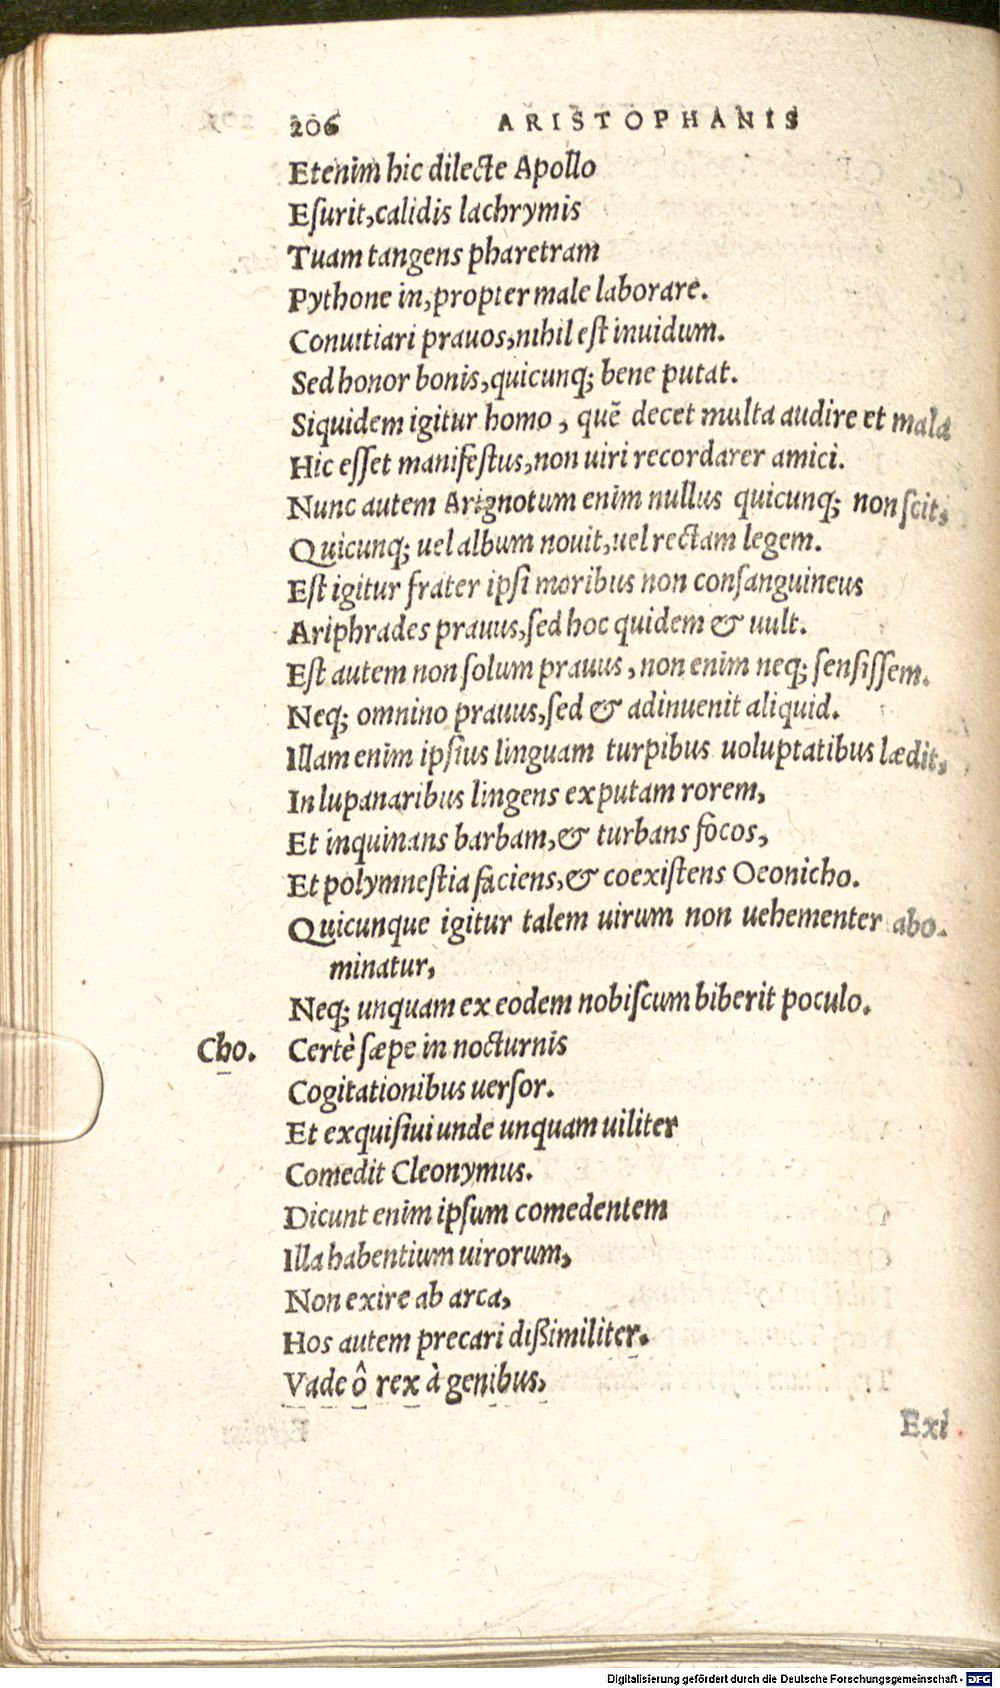 206 ARISTOPHANIS
Etenim hic dilecte Apollo
Eſurit,calidis lachrymis
Tuam tangens pharetram
Pythone in,propter male laborare.
Conuitiari prauos,nihil eſt inuidum.
Sed honor bonis,quicunq; bene putat.
Siquidem igitur homo , quẽ decet multa audire et mala
Hic eſſet manifeſtus,non uiri recordarer amici.
Nunc autem Arignotum enim nullus quicunq; non ſcit,
Quicunq; uel album nouit,uel rectam legem.
Eſt igitur frater ipſi moribus non conſanguineus
Ariphrades prauus,ſed hoc quidem & uult.
Eſt autem non ſolum prauus , non enim neq; ſenſiſſem.
Neq; omnino prauus,ſed & adinuenit aliquid.
Illam enim ipſius linguam turpibus uoluptatibus lædit,
In lupanaribus lingens exputam rorem,
Et inquinans barbam,& turbans focos,
Et polymneſtia faciens,& coexiſtens Oeonicho.
Quicunque igitur talem uirum non uehementer abo-
minatur,
Neq; unquam ex eodem nobiſcum biberit poculo.
Cho. Certè ſæpe in nocturnis
Cogitationibus uerſor.
Et exquiſiui unde unquam uiliter
Comedit Cleonymus.
Dicunt enim ipſum comedentem
Illa habentium uirorum,
Non exire ab arca,
Hos autem precari dißimiliter.
Vade ô rex à genibus,
Exi
Digitalisierung gefördert durch die Deutsche Forschungsgemeinschaft - DFG